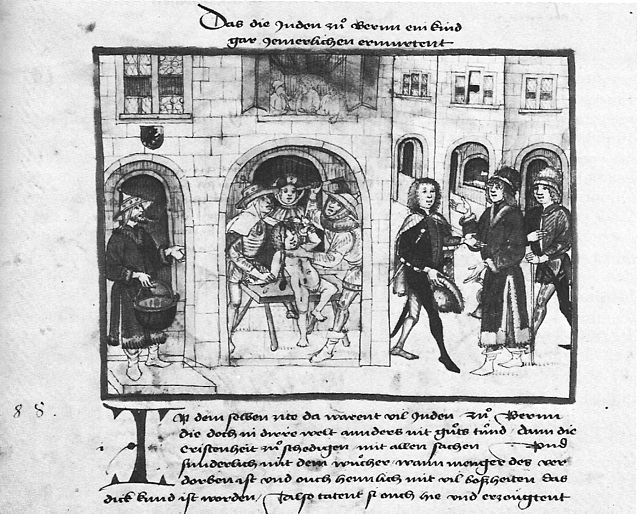 Das die Juden zů Bernn ein kind
gar jemerlichen ermurtent
In dem selben zite da warent vil Juden zů Bernn
die doch in dirre welt annders nit gůts tůnd / dann die
Cristenheit zů schedigen mit allen sachen / Vnd
sunderlich mit dem wůcher / wann menger des ver
dorben ist vnd ouch heimlich mit vil boßheiten das
dick kund ist worden / Also tatent si ouch hie vnd erzöugtent